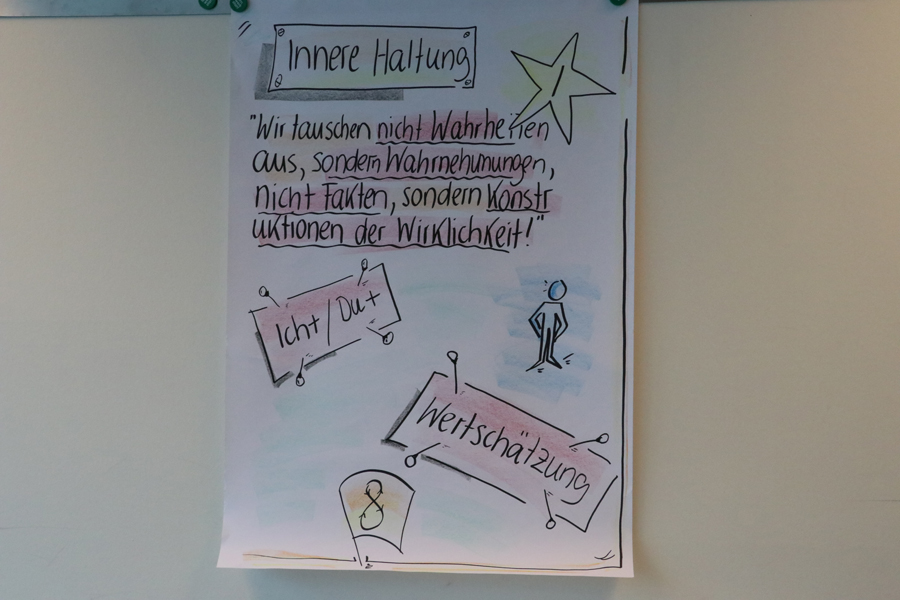 Innere Haltung
"Wir tauschen nicht Wahrheiten
aus, sondern Wahrnehmungen,
nicht Fakten, sondern Konstr
uktionen der Wirklichkeit!"
Ich+/Du+
Wertschätzung
8